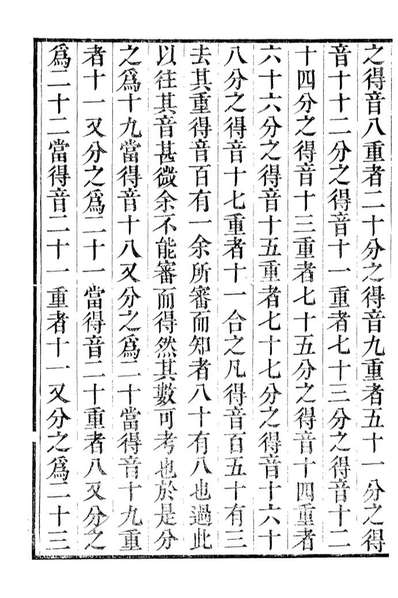 之得音八重者二十分之得音九重者五十一分之得
音十十二分之得音十一重者七十三分之得音十二
十四分之得音十三重者七十五分之得音十四重者
六十六分之得音十五重者七十七分之得音十六十
八分之得音十七重者十一合之凡得音百五十有三
去其重得音百有一余所審而知者八十有八也過此
以往其音甚微余不能審而得然其數可考也於是分
之爲十九當得音十八又分之爲二十當得音十九重
者十一又分之爲二十一當得音二十重者八又分之
爲二十二當得音二十一重者十一又分之爲二十三